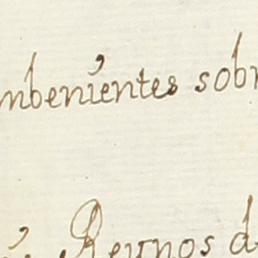 mbenientes sobr
Reynos d